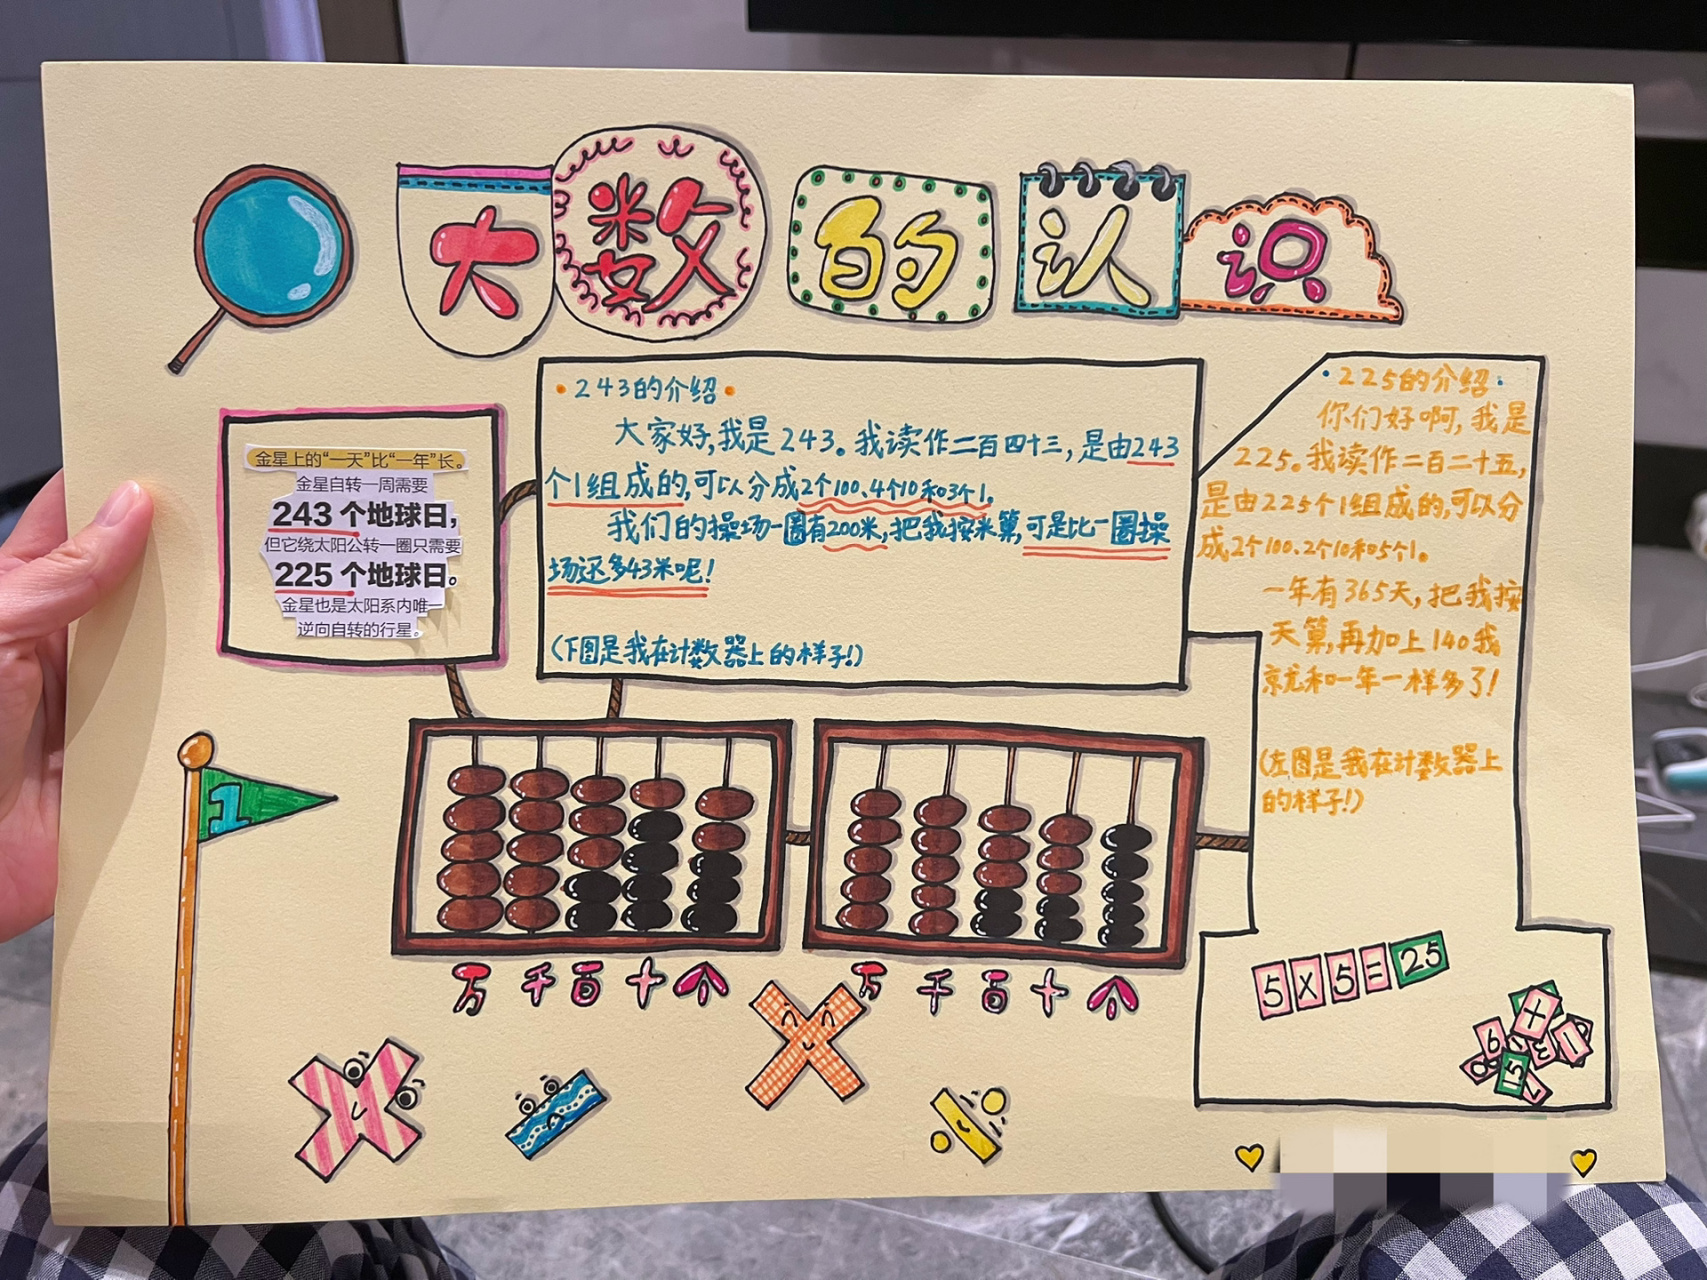 大数的认识
金星上的“一天”比“一年”长。
金星自转一周需要
243个地球日，
但它绕太阳公转一圈只需要
225个地球日。
金星也是太阳系内唯一
逆向自转的行星。
·243的介绍·
大家好，我是243。我读作二百四十三，是由243
个1组成的，可以分成2个100、4个10和3个1。
我们的操场一圈有200米，把我按米算，可是比一圈操
场还多43米呢！
（下图是我在计数器上的样子！）
·225的介绍·
你们好啊，我是
225。我读作二百二十五，
是由225个1组成的，可以分
成2个100、2个10和5个1。
一年有365天，把我按
天算，再加上140我
就和一年一样多了！
（左图是我在计数器上
的样子！）
1
万千百十个
万千百十个
5×5=25
+
9
3
1
15
7